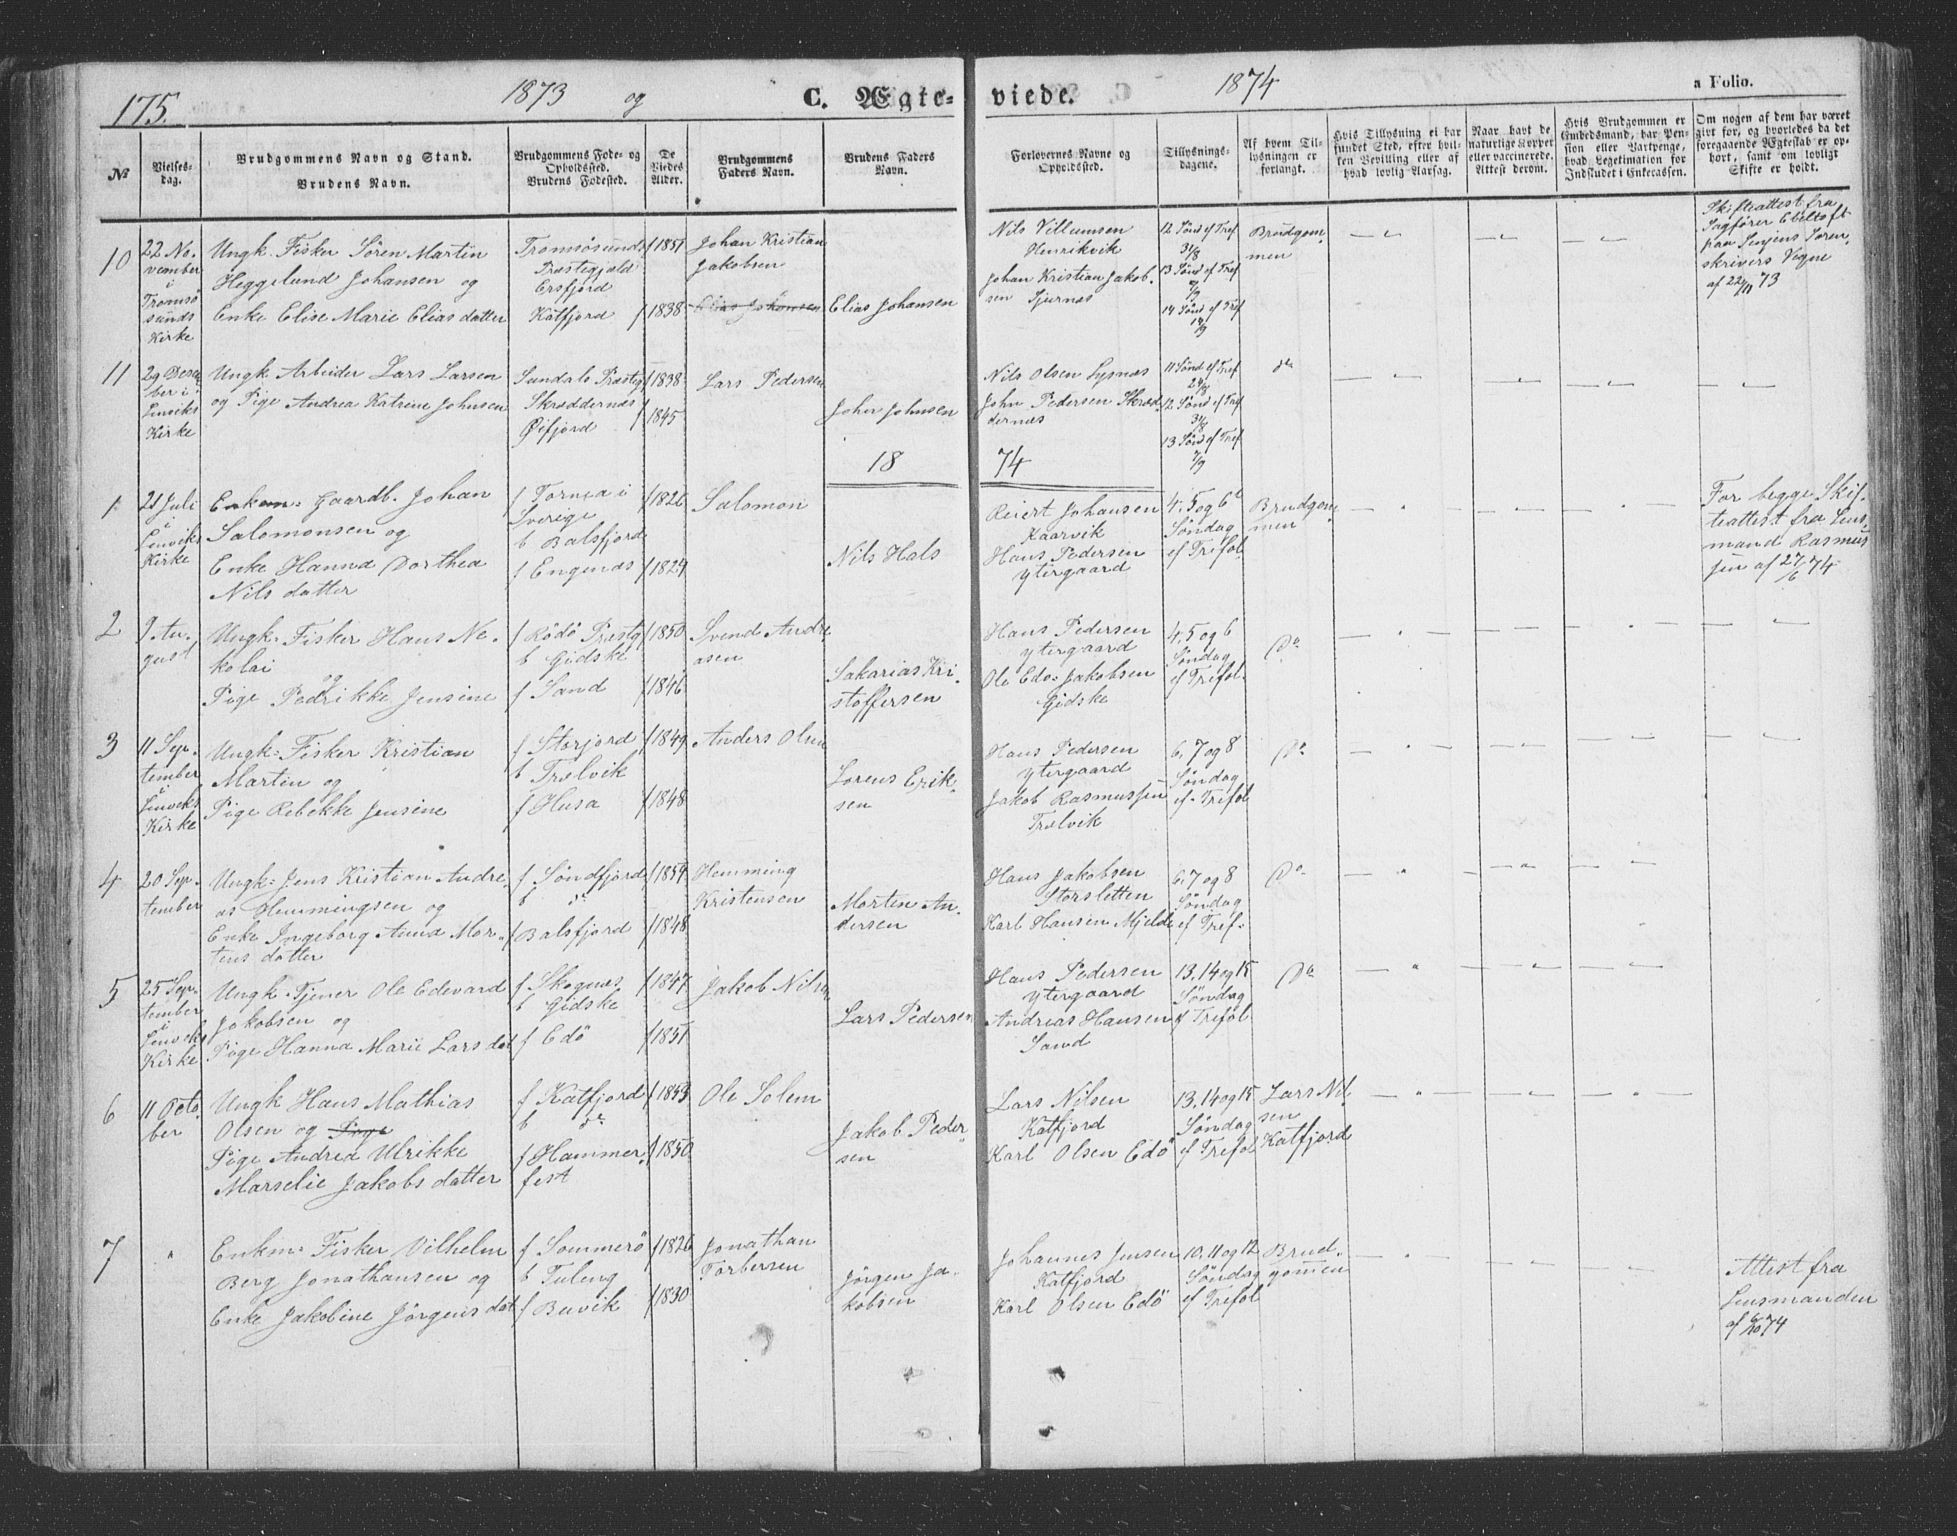 175.
1873 og
C. Ægte-
viede.
1874
a Folio.
№
Vielses-
dag.
Brudgommens Navn og Stand.
Brudens Navn.
Brudgommens Føde- og
Opholdssted.
Brudens Fødested.
De
Viedes
Alder.
Brudgommens
Faders Navn.
Brudens Faders
Navn.
Forlovernes Navne og
Opholdssted.
Tillysnings-
dagene.
Af hvem Til-
lysningen er
forlangt.
Hvis Tillysning ei har
fundet Sted, efter hvil-
ken Bevilling eller af
hvad lovlig Aarsag.
Naar havt de
naturlige Kopper
eller vaccinerede.
Attest derom.
Hvis Brudgommen er
Embedsmand, har Pen-
sion eller Vartpenge,
hvad Legetimation for
Indskudet i Enkecassen.
Om nogen af dem har været
givt før, og hvorledes da det
foregaaende Ægteskab er op-
hørt, samt om lovligt
Skifte er holdt.
10
22 No-
vember
i
Tromsö
sunds
Kirke
Ungk. Fisker Sören Martin
Heggelund Johansen og
Enke Elise Marie Elias datter
Tromsösunds
Præstegjeld
Ersfjord
Katfjord
f 1851
f 1838
Johan Kristian
Jakobsen
Elias Johansen
Elias Johansen
Nils Villumsen
Henrikvik
Johan Kristian Jakob-
sen Tjurnæs
12 Sönd ef Tref
31/8
13 Sönd ef Tref
7/9
14 Sönd ef Tref
14/9
Brudgom-
men
Skifteattest fra
Sagfører Ebeltoft
paa Senjens Soren-
skrivers Vegne
af 22/11 73
11
29 Decem-
ber i
Lenviks
Kirke
Ungk. Arbeider Lars Larsen
og Pige Andrea Katrine Johnsen
Sundals Præsteg.
Skræddernæs
Øifjord
f 1838
f 1845
Lars Pedersen
Johan Johnsen
Nils Olsen Lysnæs
John Pedersen Skræd-
dernæs
11 Sønd ef Tref
24/8
12 Sönd ef Tref
31/8
13 Sönd ef Tref
7/9
do
18 74
1
21 Juli
i
Lenviks
Kirke
Enkem: Gaardb. Johan
Salomonsen og
Enke Hanna Dorthea
Nils datter
f Tornea i
Sverige
b Balsfjord
f Engenæs
f 1826
f 1829
Salomon
Nils Hals
Reiert Johansen
Kaarvik
Hans Pedersen
Ytergaard
4, 5 og 6
Söndag
ef Trefol
Brudgom-
men
For begge Skif-
teattest fra Lens-
mand Rasmus-
sen af 27/6 74
2
9 Au-
gust
Ungk. Fisker Hans Ne-
kolai
og
Pige Pedrikke Jensine
f Rödö Præsteg
b Gidske
f Sand
f 1850
f 1846
Svend Andre
asen
Sakarias Kri-
stoffersen
Hans Pedersen
Ytergaard
Ole Edv. Jakobsen
Gidske
4, 5 og 6
Söndag
ef Trefol.
Do
3
11 Sep-
tember
i
Lenviks
Kirke
Ungk. Fisker Kristian
Martin og
Pige Rebekke Jensine
f Storjord
b Trælvik
f Husa
f 1849
f 1848
Anders Olsen
Lorens Erik-
sen
Hans Pedersen
Ytergaard
Jakob Rasmussen
Trælvik
6, 7 og 8
Söndag
ef. Trefol
Do
4
20 Sep-
tember
Ungk. Jens Kristian Andre-
as Hemmingsen og
Enke Ingeborg Anna Mor-
tens datter
f Söndfjord
b do
f Balsfjord
f 1854
f 1848
Hemming
Kristensen
Morten An-
dersen
Hans Jakobsen
Storsletten
Karl Hansen Mjelde
6, 7 og 8
Söndag
ef Tref.
Do
5
25 Sep-
tember
i
Lenviks
Kirke
Ungk. Tjener Ole Edevard
Jakobsen og
Pige Hanna Marie Lars dat
f Skognæs
b Gidske
f Edö
f 1847
f 1851
Jakob Nilsen
Lars Pedersen
Hans Pedersen
Ytergaard
Andreas Hansen
Sand
13, 14 og 15
Söndag
ef Trefol
Do
6
11 Octo-
ber
Ungk Hans Mathias
Olsen og Pige
Pige Andrea Ulrikke
Marselie Jakobs datter
f Katfjord
b do
f Hammer-
fest
f 1853
f 1850
Ole Solem
Jakob Peder-
sen
Lars Nilsen
Katfjord
Karl Olsen Edö
13, 14 og 15
Söndag
ef Trefol
Lars Nil-
sen
Katfjord
7
Enkm. Fisker Vilhelm
Berg Jonathansen og
Enke Jakobine Jörgens dat
f Sommerö
b Tuleng
f Buvik
f 1826
f 1830
Jonathan
Torbersen
Jörgen Ja-
kobsen
Johannes Jensen
Katfjord
Karl Olsen Edö
10, 11 og 12
Söndag
ef Trefol
Brud-
gommen
Attest fra
Lensmanden
af 6/10 74